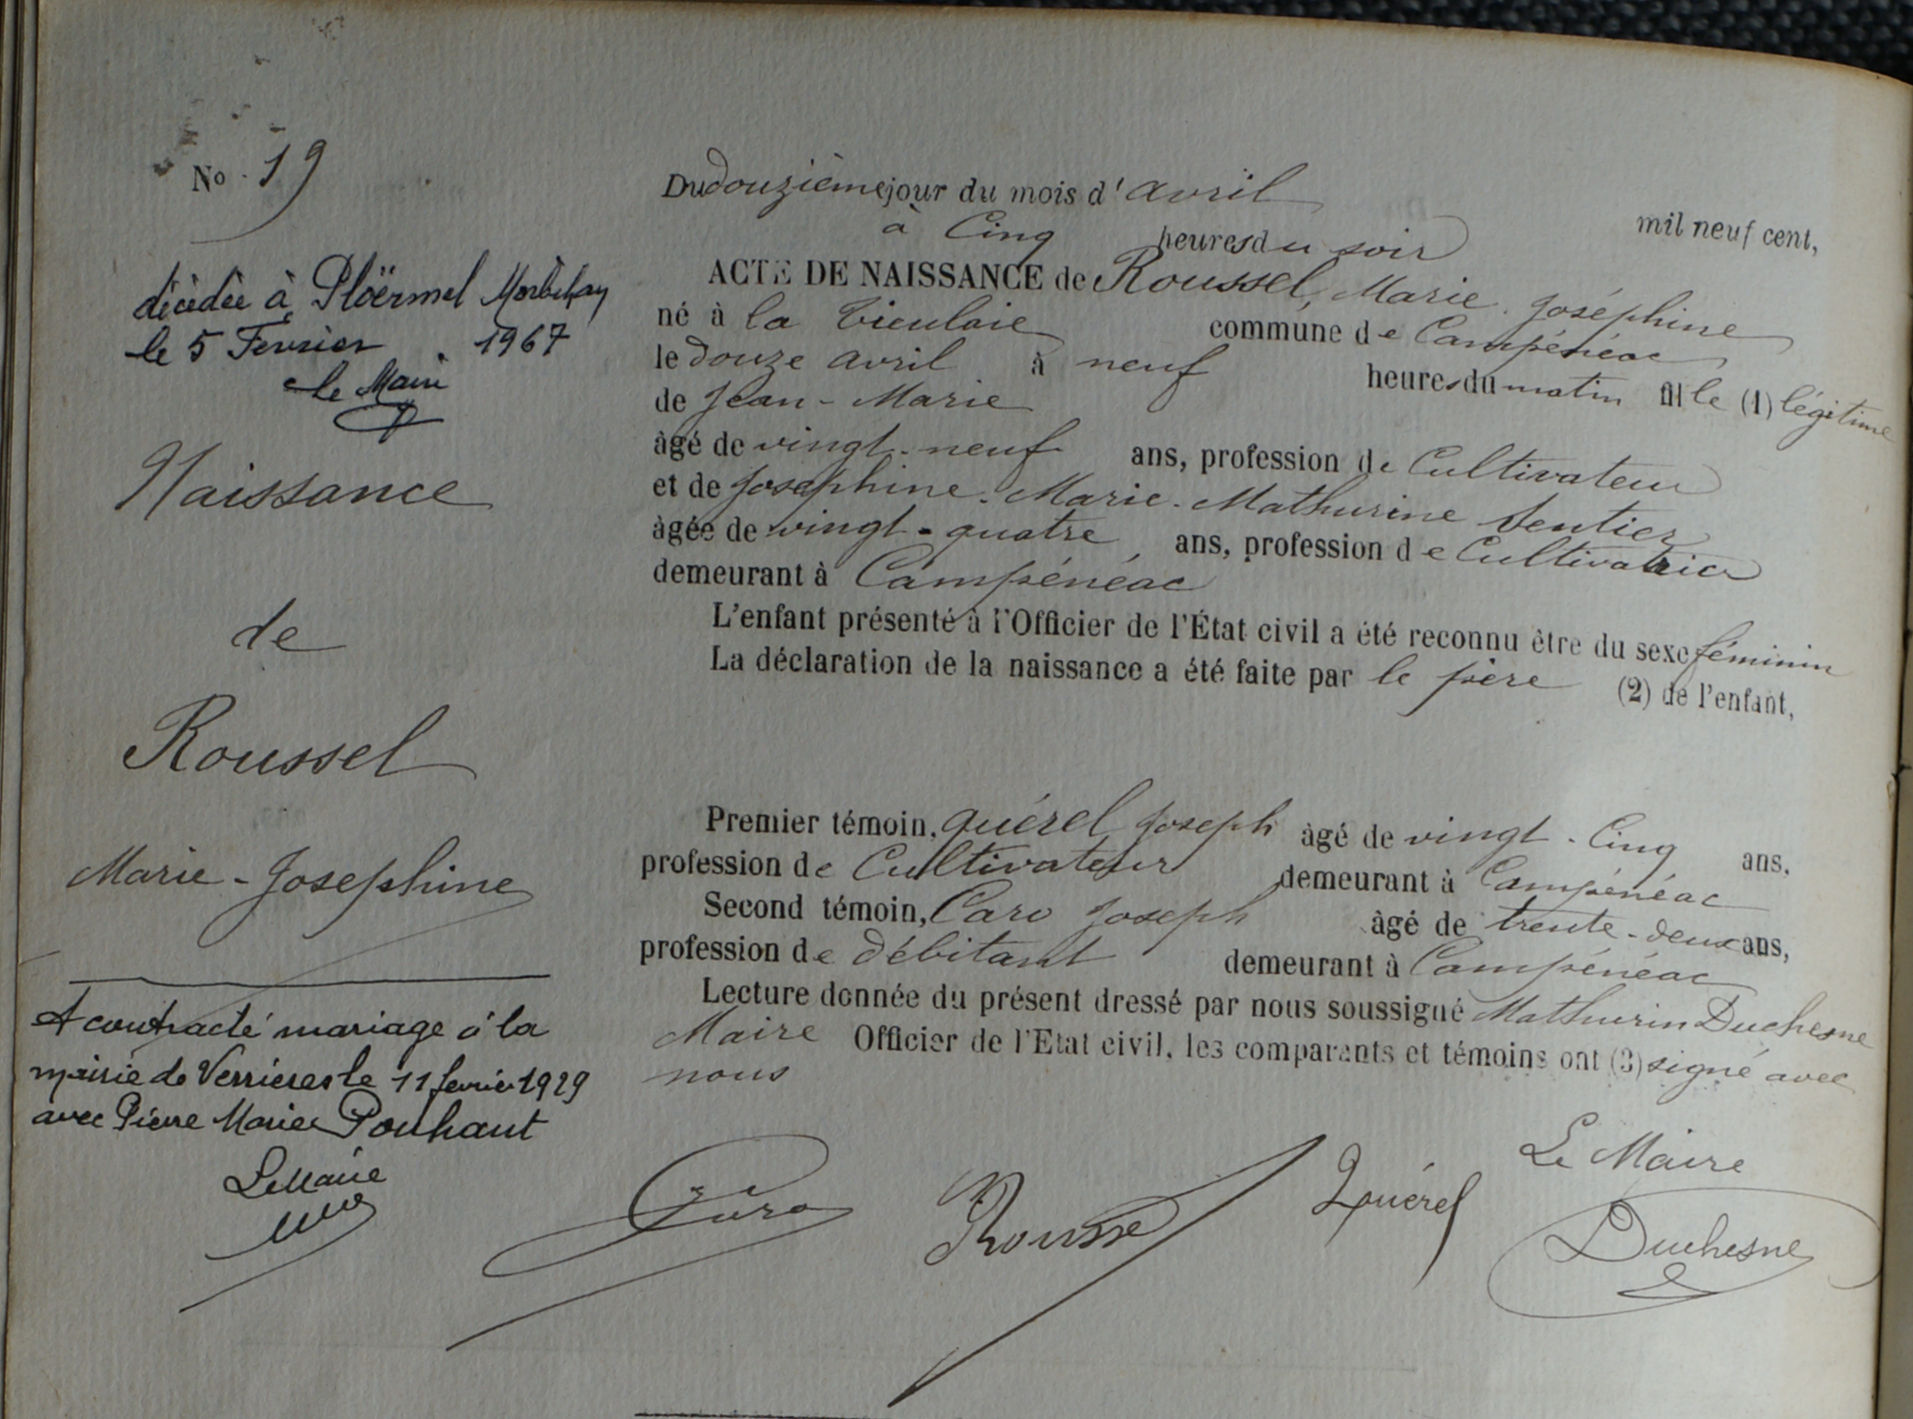 No 19
décèdèe à Ploërmel Morbihan
le 5 Fevrier 1967
le Mair
Naissance
de
Roussel
Marie-Josephine
A contracté mariage à la
mairie de Verrieres le 11 fevrier 1929
avec Pierre Marie Pouhaut
Le Maire
Du douzième jour du mois d'avril mil neuf cent,
à Cinq heures du soir
ACTE DE NAISSANCE de Roussel, Marie-Joséphine
né à la commune de Campénéac
le douze avril à neuf heures du matin fille (1) légitime
de Jean-Marie
âgé de vingt-neuf ans, profession de Cultivateur
et de Josephine-Marie-Mathurine Sentier
âgée de vingt-quatre, ans, profession de Cultivatrice
demeurant à Campénéac
L'enfant présenté à l'Officier de l'État civil a été reconnu être du sexe féminin
La déclaration de la naissance a été faite par le père (2) de l'enfant,
Premier témoin, Quérel Joseph âgé de vingt-Cinq ans,
profession de Cultivateur demeurant à Campénéac
Second témoin, Caro Joseph âgé de trente-deux ans,
profession de débitant demeurant à Campénéac
Lecture donnée du présent dressé par nous soussigné Mathurin Duchesne
Maire Officier de l'Etat civil, les comparants et témoins ont (3) signé avec
nous
Le Maire
Caro Roussel Quérel Duchesne